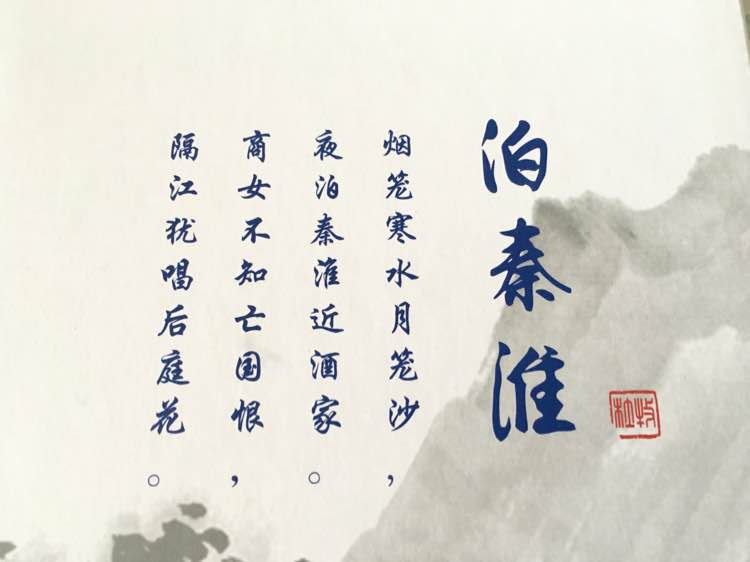 泊秦淮
杜牧
烟笼寒水月笼沙，
夜泊秦淮近酒家。
商女不知亡国恨，
隔江犹唱后庭花。